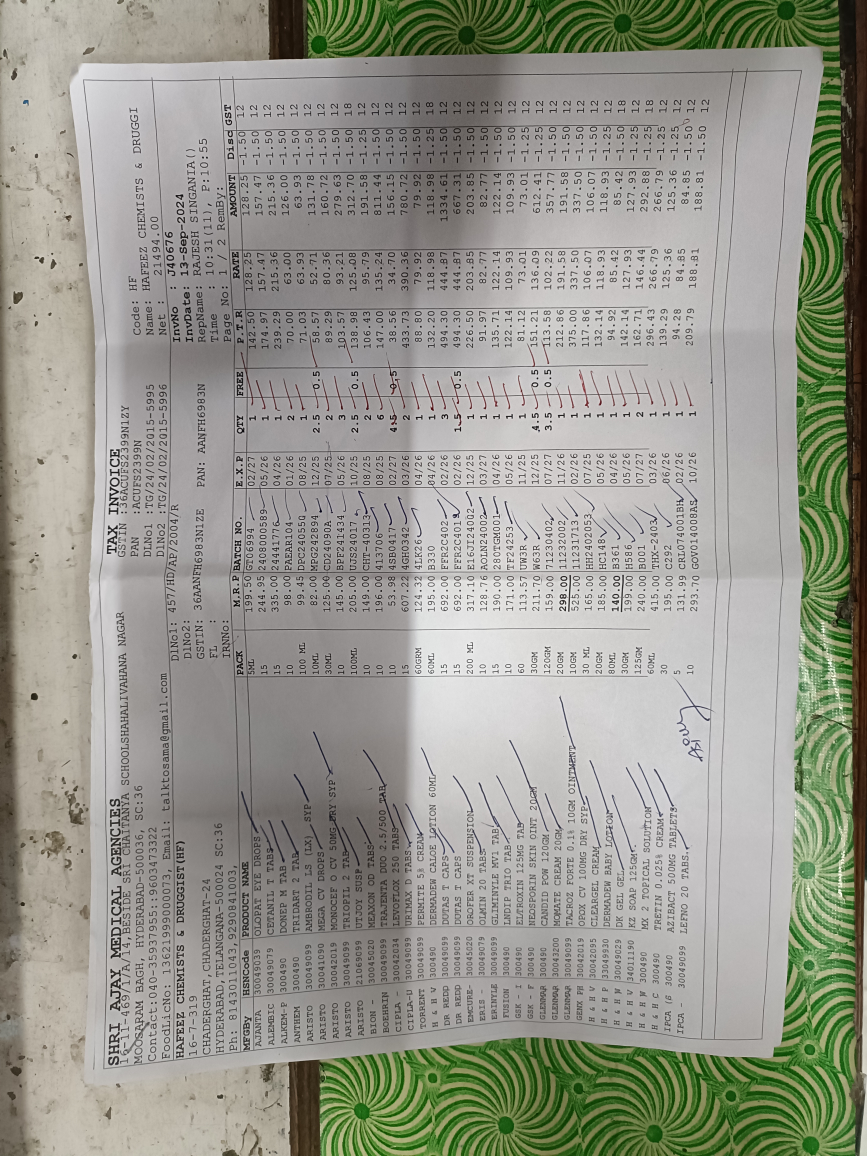 SHRI AJAY MEDICAL AGENCIES TAX INVOICE
16-11-469/1/A/14,BESIDE SRI CHAITANYA SCHOOLSHAHALIVAHANA NAGAR GSTIN :36ACUFS2399N1ZY Code: HF
MOOSARAM BAGH, HYDERABAD-500036, SC:36 PAN :ACUFS2399N Name: HAFEEZ CHEMISTS & DRUGGI
Contact:040-35937955::9603473322 DLNo1 :TG/24/02/2015-5995 Net : 21494.00
FoodLicNo: 13621999000073, Email: talktosama@gmail.com DlNo2 :TG/24/02/2015-5996
HAFEEZ CHEMISTS & DRUGGIST(HF) DlNo1: 457/HD/AP/2004/R InvNo : J40676
16-7-319 DlNo2: InvDate: 13-Sep-2024
CHADERGHAT,CHADERGHAT-24 GSTIN: 36AANFH6983N1ZE PAN: AANFH6983N RepName: RAJESH SINGANIA()
HYDERABAD,TELANGANA-500024 SC:36 FL : Time : 10:31(11), P:10:55
Ph: 8143011043,9290841003, IRNNo: Page No: 1 / 2 RemBy:
MFGBY HSNCode PRODUCT NAME PACK M.R.P BATCH NO. E.X.P QTY FREE P.T.R RATE AMOUNT Disc GST
AJANTA 30049039 OLOPAT EYE DROPS 5ML 199.50 GT06994 02/27 1 142.50 128.25 128.25 -1.50 12
ALEMBIC 30049079 CETANIL T TABS 15 244.95 2408000589 05/26 1 174.97 157.47 157.47 -1.50 12
ALKEM-P 300490 DONEP M TAB 15 335.00 24441776 04/26 1 239.29 215.36 215.36 -1.50 12
ANTHEM 300490 TRIDART 2 TAB 10 98.00 PAEAR104 01/26 2 70.00 63.00 126.00 -1.50 12
ARISTO 30049099 AMBRODIL LS (LX) SYP 100 ML 99.45 DPC240550 08/25 1 71.03 63.93 63.93 -1.50 12
ARISTO 30041090 MEGA CV DROPS 10ML 82.00 MPG242894 12/25 2.5 0.5 58.57 52.71 131.78 -1.50 12
ARISTO 30042019 MONOCEF O CV 50MG DRY SYP 30ML 125.00 CD24090A 07/25 2 89.29 80.36 160.72 -1.50 12
ARISTO 30049099 TRIOPIL 2 TAB 10 145.00 BPF241434 05/26 3 103.57 93.21 279.63 -1.50 12
ARISTO 21069099 UTIJOY SUSP 100ML 205.00 UJS24017 10/25 2.5 0.5 138.98 125.08 312.70 -1.50 18
BION - 30045020 MEAXON OD TABS 10 149.00 CHT-40313 08/25 2 106.43 95.79 191.58 -1.25 12
BOEHRIN 30049099 TRAJENTA DUO 2.5/500 TAB 10 196.00 413706 08/27 6 147.00 135.24 811.44 -1.50 12
CIPLA - 30042034 LEVOFLOX 250 TABS 10 53.98 4SB0417 02/27 4.5 0.5 38.56 34.70 156.15 -1.50 12
CIPLA-U 30049099 URIMAX D TABS 15 607.22 4GH0342 03/26 2 433.73 390.36 780.72 -1.50 12
TORRENT 30049099 PERMITE 5% CREAM 60GRM 124.32 4LK26 04/26 1 88.80 79.92 79.92 -1.50 12
H & H V 300490 DERMADEW CALOE LOTION 60ML 60ML 195.00 B330 04/26 1 132.20 118.98 118.98 -1.25 18
DR REDD 30049099 DUTAS T CAPS 15 692.00 FFR2C402 02/26 3 494.30 444.87 1334.61 -1.50 12
DR REDD 30049099 DUTAS T CAPS 15 692.00 FFR2C401 02/26 1.5 0.5 494.30 444.87 667.31 -1.50 12
EMCURE- 30045020 OROFER XT SUSPENSION 200 ML 317.10 E16JT24002 12/25 1 226.50 203.85 203.85 -1.50 12
ERIS - 30049079 GLMIN 20 TABS 10 128.76 AOLN24002 03/27 1 91.97 82.77 82.77 -1.50 12
ERINYLE 30049099 GLIMINYLE MV1 TAB 15 190.00 28OTGM001 04/26 1 135.71 122.14 122.14 -1.50 12
FUSION 300490 LNDIP TRIO TAB 10 171.00 TF24253 05/26 1 122.14 109.93 109.93 -1.50 12
GSK - E 300490 ELTROXIN 125MG TAB 60 113.57 UW3R 11/25 1 81.12 73.01 73.01 -1.25 12
GSK - F 300490 NEOSPORIN SKIN OINT 20GM 30GM 211.70 W63R 12/25 4.5 0.5 151.21 136.09 612.41 -1.25 12
GLENMAR 300490 CANDID POW 120GM 120GM 159.00 71230402 07/27 3.5 0.5 113.58 102.22 357.77 -1.50 12
GLENMAR 30043200 MOMATE CREAM 20GM 20GM 298.00 11232002 11/26 1 212.86 191.58 191.58 -1.50 12
GLENMAR 30049099 TACROZ FORTE 0.1% 10GM OINTMENT 10GM 525.00 11231713 02/26 1 375.00 337.50 337.50 -1.50 12
GENX PH 30042019 OROX CV 100MG DRY SYP 30 ML 165.00 HHC402053 07/25 1 117.86 106.07 106.07 -1.50 12
H & H V 30042095 CLEARGEL CREAM 20GM 185.00 HC148 05/26 1 132.14 118.93 118.93 -1.25 12
H & H P 33049930 DERMADEW BABY LOTION 80ML 140.00 B361 04/26 1 94.92 85.42 85.42 -1.50 18
H & H W 30049029 DK GEL GEL 30GM 199.00 H586 05/26 1 142.14 127.93 127.93 -1.25 12
H & H P 34011190 MZ SOAP 125GM 125GM 240.00 B001 07/27 2 162.71 146.44 292.88 -1.25 18
H & H W 300490 MX 7 TOPICAL SOLUTION 60ML 415.00 THX-2403 03/26 1 296.43 266.79 266.79 -1.25 12
H & H C 300490 TRETIN 0.025% CREAM 30 195.00 C292 06/26 1 139.29 125.36 125.36 -1.25 12
IPCA (6 300490 AZIBACT 500MG TABLETS 5 131.99 CRL074001BH 02/26 1 94.28 84.85 84.85 -1.50 12
IPCA - 30049099 LEFNO 20 TABS. 10 293.70 GOV014008AS 10/26 1 209.79 188.81 188.81 -1.50 12